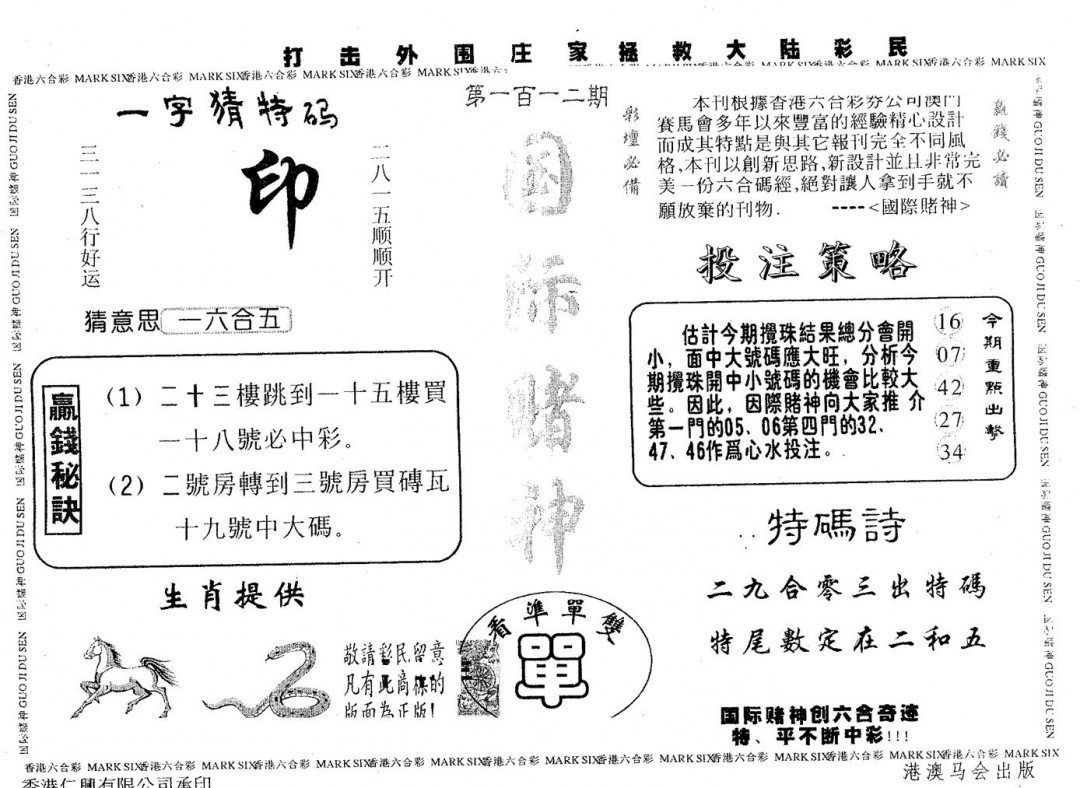 打击外围庄家拯救大陆彩民
香港六合彩 MARK SIX香港六合彩 MARK SIX香港六合彩 MARK SIX香港六合彩 MARK SIX
第一百一二期
一字猜特码
三一三八行好运
印
二八一五顺顺开
猜意思 一六合五
贏錢秘訣
(1) 二十三樓跳到一十五樓買
一十八號必中彩。
(2) 二號房轉到三號房買磚瓦
十九號中大碼。
生肖提供
敬請彩民留意
凡有此商標的
版面為正版!
国际赌神
看準單雙
單
彩壇必備
本刊根據香港六合彩券公司澳門
賽馬會多年以來豐富的經驗精心設計
而成其特點是與其它報刊完全不同風
格,本刊以創新思路,新設計並且非常完
美一份六合碼經,絕對讓人拿到手就不
願放棄的刊物. ----<國際賭神>
贏錢必讀
投注策略
估計今期攪珠結果總分會開
小，面中大號碼應大旺，分析今
期攪珠開中小號碼的機會比較大
些。因此，因際賭神向大家推 介
第一門的05、06第四門的32、
47、46作爲心水投注。
16
07
42
27
34
今期重點出擊
特碼詩
二九合零三出特碼
特尾數定在二和五
国际赌神创六合奇迹
特、平不断中彩!!!
国际赌神 GUO JI DU SEN
香港六合彩 MARK SIX香港六合彩 MARK SIX香港六合彩 MARK SIX香港六合彩 MARK SIX香港六合彩 MARK SIX香港六合彩 MARK SIX香港六合彩 MARK SIX香港六合彩 MARK SIX香港六合彩 MARK SIX
香港仁興有限公司承印
港澳马会出版